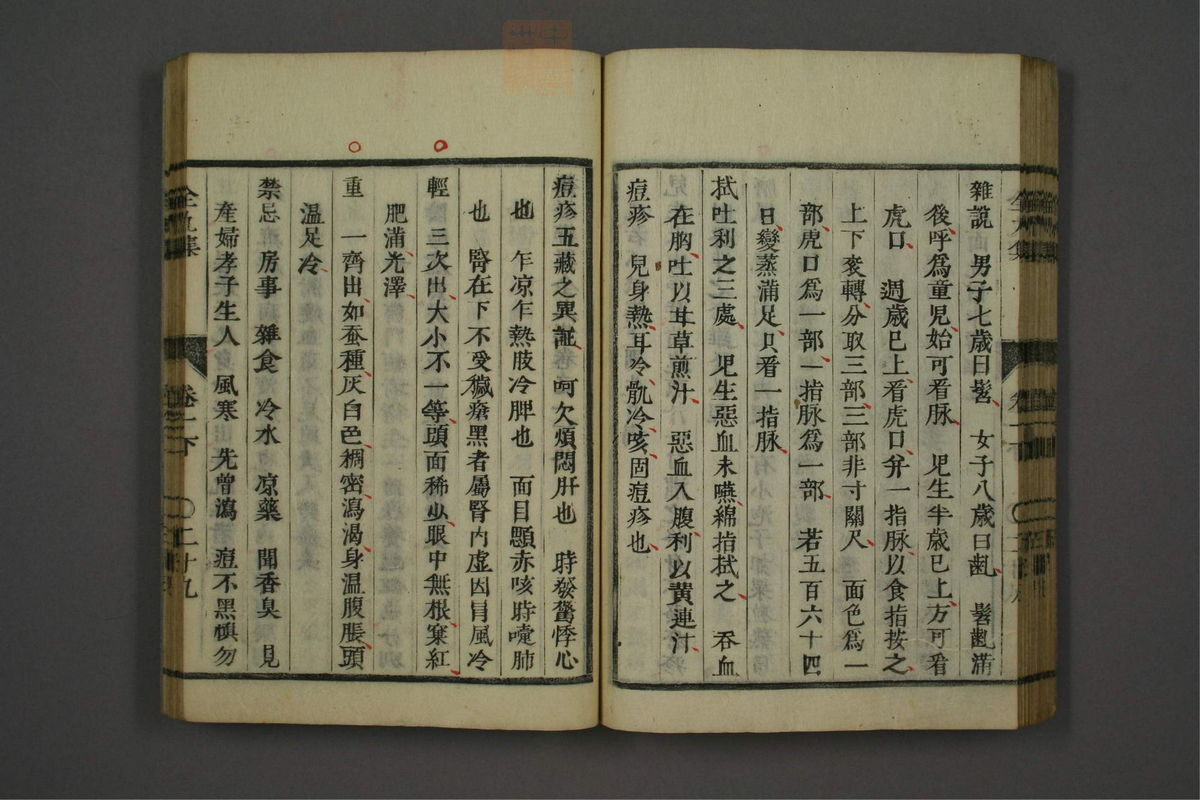 雜說 男子七歲曰髫 女子八歲曰齓 髫齓滿
後呼爲童児始可看脉 児生半歲已上方可看
虎口 週歲已上看虎口弁一指脉以食指按之
上下衮轉分取三部三部非寸關尺 面色爲一
部虎口爲一部一指脉爲一部 若五百六十四
日變蒸滿足只看一指脉
拭吐利之三處 児生惡血未嚥綿指拭之 吞血
在胸吐以甘草煎汁 惡血入腹利以黄連汁
痘疹 兒身熱耳冷骩冷咳固痘疹也
痘疹五藏之異証 呵欠煩悶肝也 時發驚悸心
也 乍凉乍熱肢冷脾也 面目顋赤咳時嚔肺
也 腎在下不受穢瘡黑者屬腎内虚因冐風冷
輕 三次出大小不一等頭面稀少眼中無根窠紅
肥滿光澤
重 一齊出如蚕種灰白色稠密瀉渴身温腹脹頭
温足冷
禁忌 房事 雜食 冷水 凉藥 聞香臭 見
産婦孝子生人 風寒 先曾瀉 痘不黑慎勿
全九集
卷一下
〇二十九